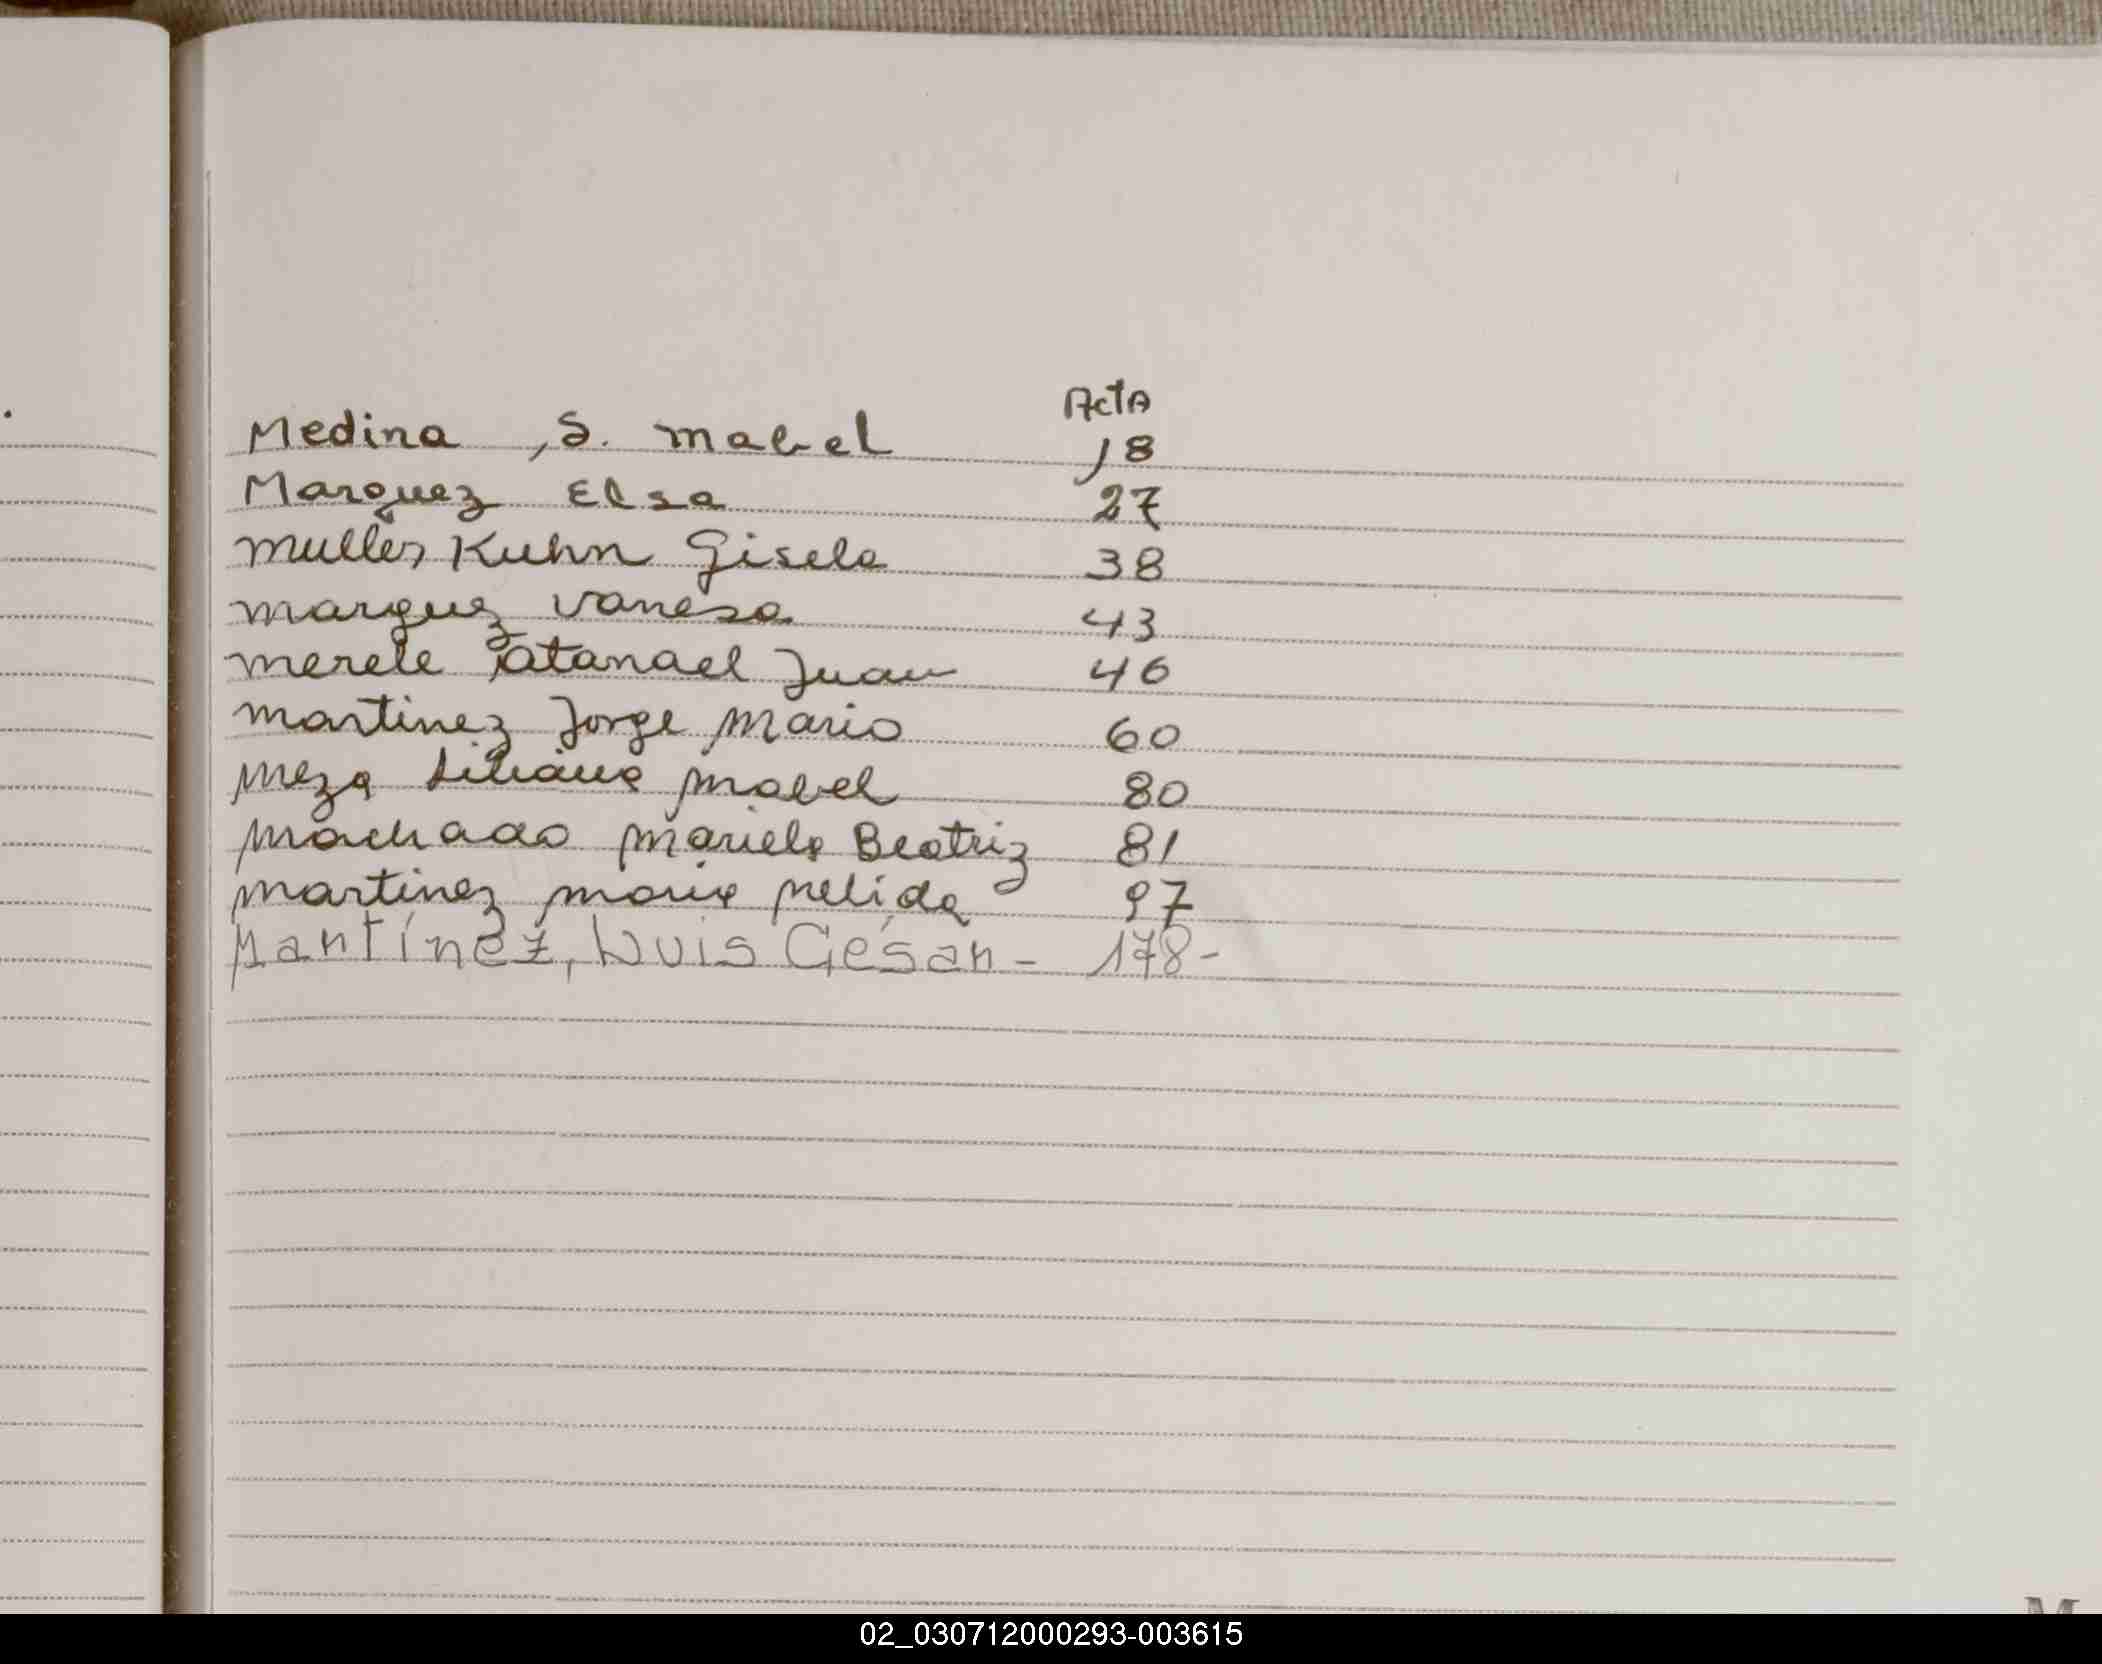 Acta
Medina, S. Mabel 18
Marquez Elsa 27
Muller Kuhn Gisela 38
Marquez Vanesa 43
Merele Atanael Juan 46
Martinez Jorge Mario 60
Meza Liliana Mabel 80
Machado Mariela Beatriz 81
Martinez Maria Nelida 97
Martínez, Luis César - 178-
M
02_030712000293-003615